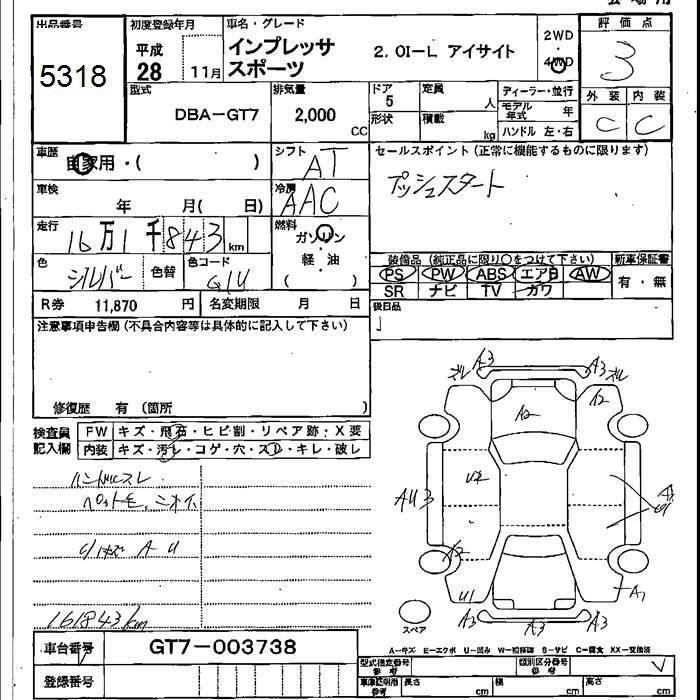 出品番号 初度登録年月 車名・グレード 評価点
5318 平成 28 11月 インプレッサ スポーツ 2.0I-L アイサイト 2WD 4WD 3
型式 DBA-GT7 排気量 2,000 CC
ドア 5 定員 人 ディーラー・並行 外装 内装
形状 積載 kg モデル年式 年 C C
ハンドル 左・右
車歴 自家用・( ) シフト AT セールスポイント (正常に機能するものに限ります)
車検 年 月( 日) 冷房 AAC プッシュスタート
走行 16万1千843km 燃料 ガソリン
軽・油
( )
色 シルバー 色替 色コード G1U
装備品 (純正品に限り○をつけて下さい) 新車保証書
PS PW ABS エアB AW 有・無
SR ナビ TV カワ
R券 11,870 円 名変期限 月 日 後日品
注意事項申告欄 (不具合内容等は具体的に記入して下さい)
修復歴 有 (箇所 )
検査員 記入欄 FW キズ・飛石・ヒビ割・リペア跡・X要
内装 キズ・汚レ・コゲ・穴・スレ・キレ・破レ
ハンドルスレ
ペット毛、ニオイ
A U
161843km
A3 A3
A2 A2
U2
AU3
A2
U1 A1
A3 A3 A3
スペア
A-キズ E-エクボ U-凹み W-補修跡 S-サビ C-腐食 XX-交換済
車台番号 GT7-003738
型式指定番号 参考 類別区分番号 参考
登録番号 車庫証明用 参考 長さ cm 幅 cm 高さ cm